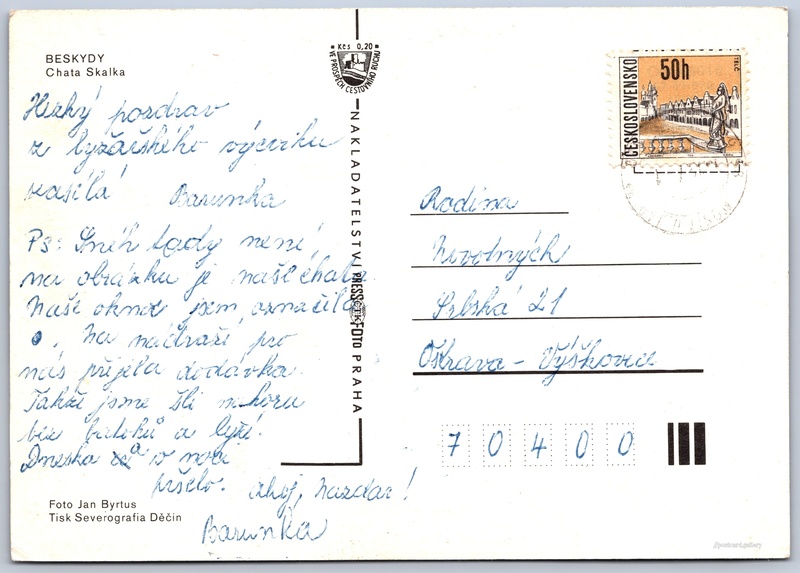 BESKYDY
Chata Skalka
Hezký pozdrav
z lyžařského výcviku
zasílá Barunka
Ps: Sněh tady není,
na obrázku je naše chata.
Naše okna jsem označila
•. Na nádraží pro
nás přijela dodávka.
Takže jsme šli nahoru
bez batohů a lyží.
Dneska v noci
pršelo. ahoj, nazdar!
Barunka
Foto Jan Byrtus
Tisk Severografia Děčín
Kčs 0,20
VE PROSPĚCH CESTOVNÍHO RUCHU
NAKLADATELSTVÍ PRESSFOTO PRAHA
ČESKOSLOVENSKO
50h
TELČ
Rodina
Novotných
Srbská 21
Ostrava - Výškovice
70400